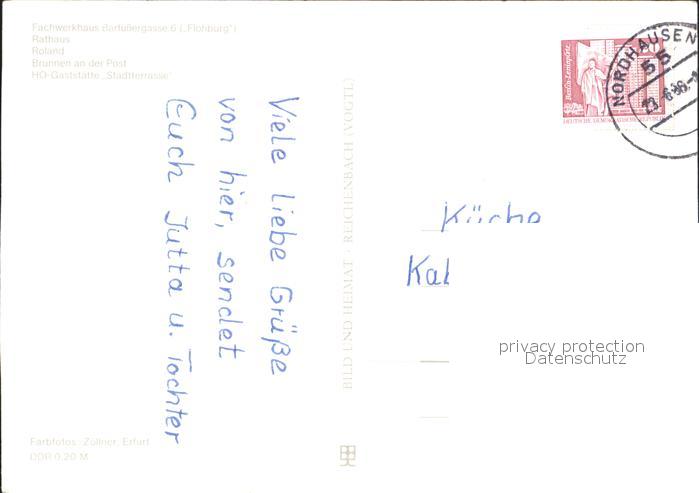 Fachwerkhaus Barfüßergasse 6 („Flohburg")
Rathaus
Roland
Brunnen an der Post
HO-Gaststätte „Stadtterrasse"
Viele liebe Grüße
von hier, sendet
Euch Jutta u. Tochter
Farbfotos: Zöllner, Erfurt
DDR 0,20 M
BILD UND HEIMAT · REICHENBACH (VOGTL)
Berlin-Leninplatz
DEUTSCHE DEMOKRATISCHE REPUBLIK
NORDHAUSEN
55
Küche
Kal
privacy protection
Datenschutz